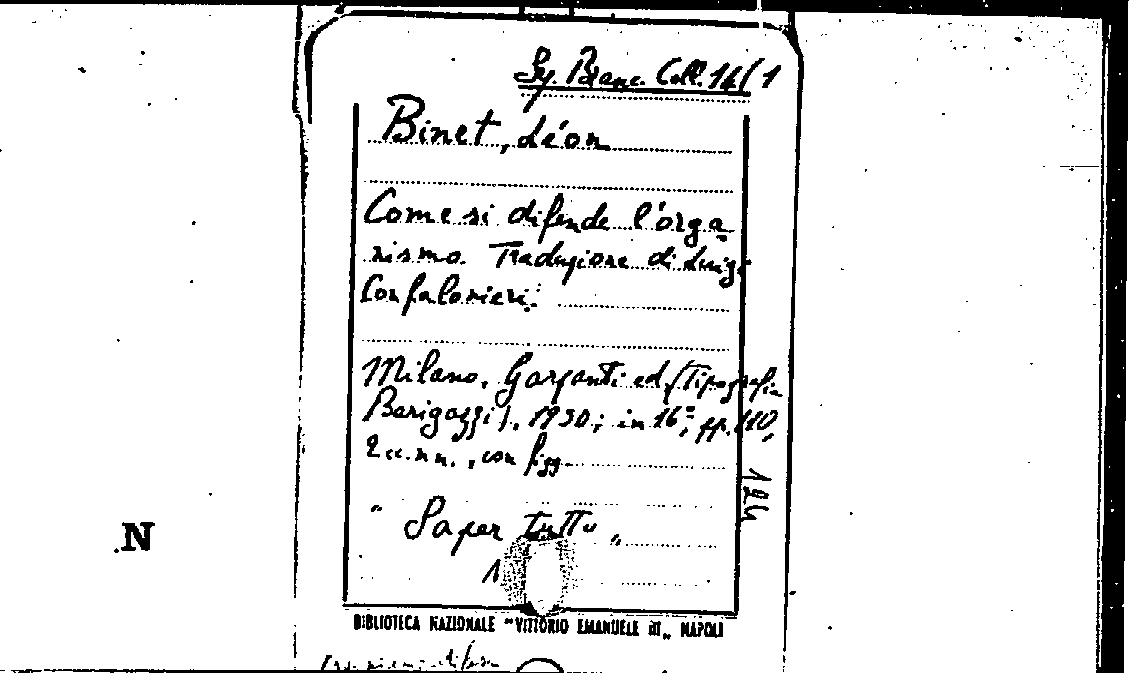 Sg. Branc. Coll. 14/1
Binet, Léon
Come si difende l'orga-
nismo. Traduzione di Luigi
Confalonieri.
Milano, Garzanti ed. (Tipografia
Barigazzi), 1950; in 16°, pp. 110,
2 cc. n n., con figg.
" Saper tutto "
1
124
N
BIBLIOTECA NAZIONALE "VITTORIO EMANUELE III„ NAPOLI